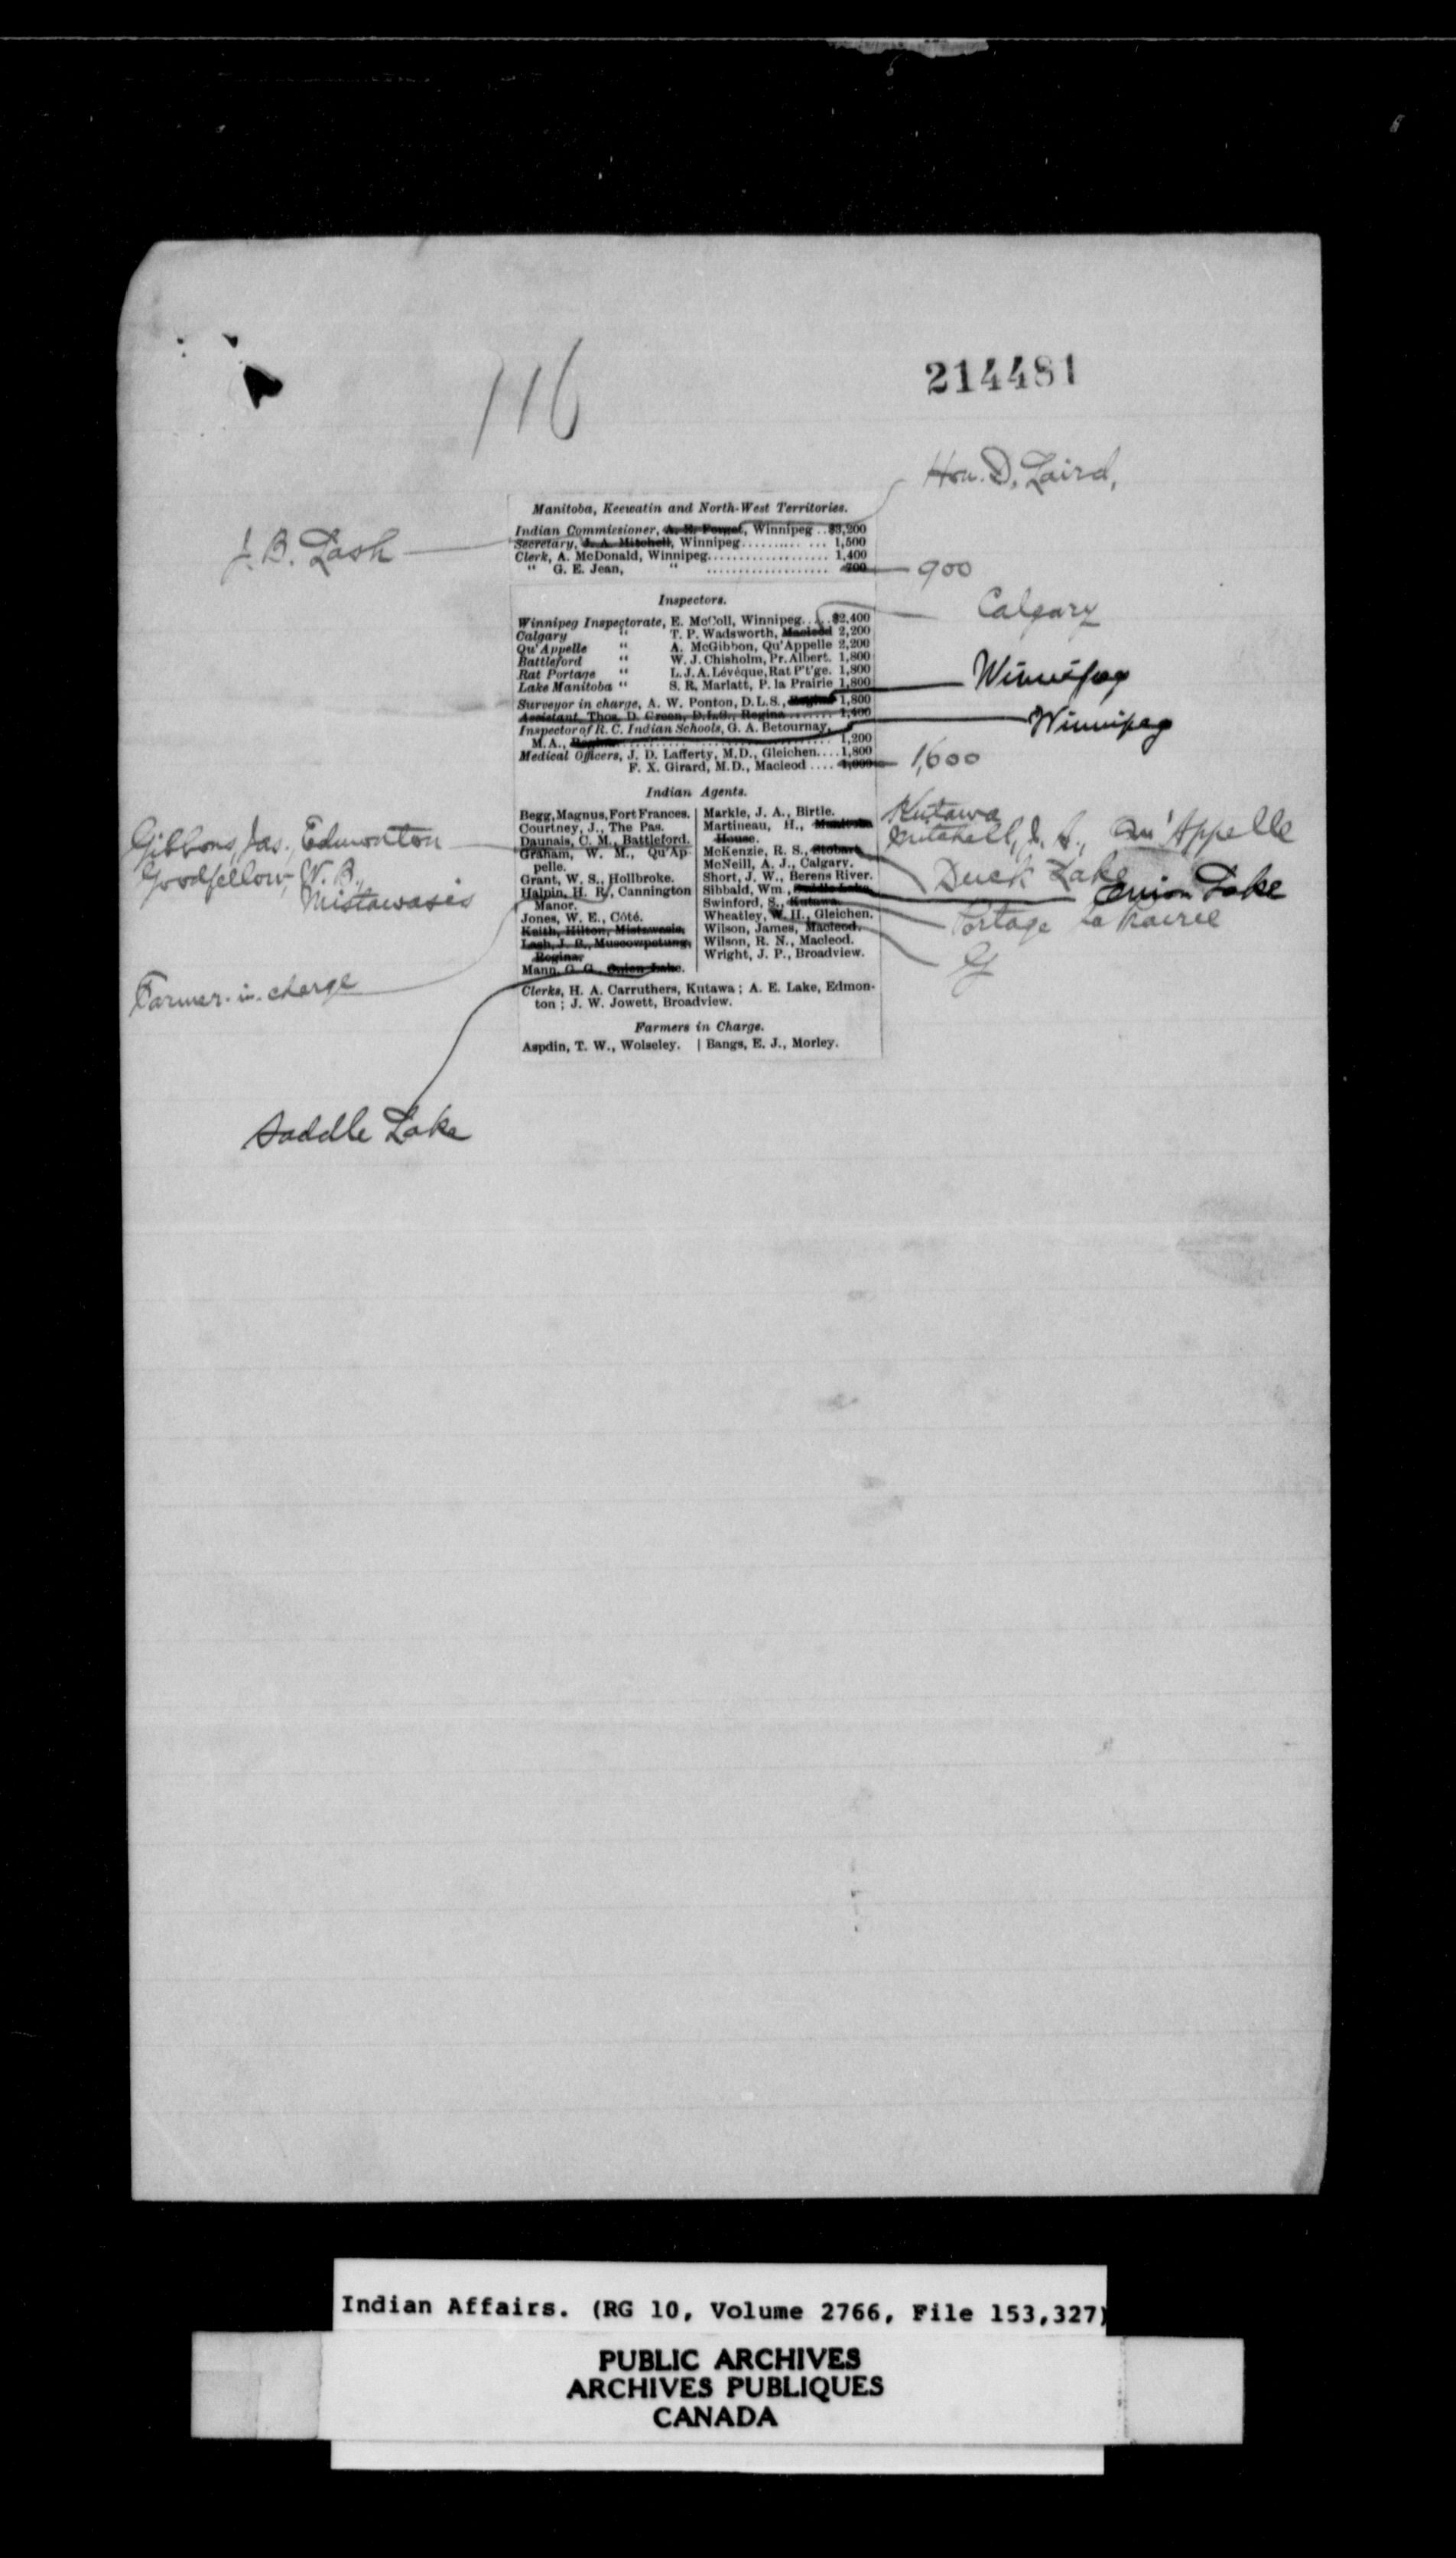 116
214481
Hon. D. Laird,
Manitoba, Keewatin and North-West Territories.
Indian Commissioner, A. E. Forget, Winnipeg .. $3,200
J. B. Lash
Secretary, J. A. Mitchell, Winnipeg ......... ... 1,500
Clerk, A. McDonald, Winnipeg................... 1,400
" G. E. Jean, " ................... 700
900
Inspectors.
Calgary
Winnipeg Inspectorate, E. McColl, Winnipeg.. . .$2,400
Calgary " T. P. Wadsworth, Macleod 2,200
Qu'Appelle " A. McGibbon, Qu'Appelle 2,200
Battleford " W. J. Chisholm, Pr. Albert. 1,800
Rat Portage " L. J. A. Lévêque, Rat P't'ge. 1,800
Lake Manitoba " S. R. Marlatt, P. la Prairie 1,800
Winnipeg
Surveyor in charge, A. W. Ponton, D.L.S., Regina 1,800
Assistant, Thos. D. Green, D.L.S., Regina ....... 1,400
Winnipeg
Inspector of R. C. Indian Schools, G. A. Betournay,
M.A., Regina ............................... 1,200
Medical Officers, J. D. Lafferty, M.D., Gleichen.... 1,800
F. X. Girard, M.D., Macleod ....
1,600
Indian Agents.
Begg, Magnus, Fort Frances.
Courtney, J., The Pas.
Daunais, C. M., Battleford.
Gibbons, Jas., Edmonton
Goodfellow, W. B.,
Mistawasis
Graham, W. M., Qu'Ap-
pelle.
Grant, W. S., Hollbroke.
Halpin, H. R., Cannington
Manor.
Farmer-in-charge
Jones, W. E., Côté.
Keith, Hilton, Mistawasis.
Lash, J. B., Muscowpetung,
Regina.
Mann, G. G., Onion Lake.
Saddle Lake
Markle, J. A., Birtle.
Martineau, H., Manitoba
House.
Kutawa
Mitchell, J. A., Qu'Appelle
McKenzie, R. S., Stobart.
Duck Lake
McNeill, A. J., Calgary.
Short, J. W., Berens River.
Sibbald, Wm., Saddle Lake.
Onion Lake
Swinford, S., Kutawa.
Portage la Prairie
Wheatley, W. H., Gleichen.
Wilson, James, Macleod.
Wilson, R. N., Macleod.
Wright, J. P., Broadview.
Clerks, H. A. Carruthers, Kutawa; A. E. Lake, Edmon-
ton; J. W. Jowett, Broadview.
Farmers in Charge.
Aspdin, T. W., Wolseley. | Bangs, E. J., Morley.
Indian Affairs. (RG 10, Volume 2766, File 153,327)
PUBLIC ARCHIVES
ARCHIVES PUBLIQUES
CANADA